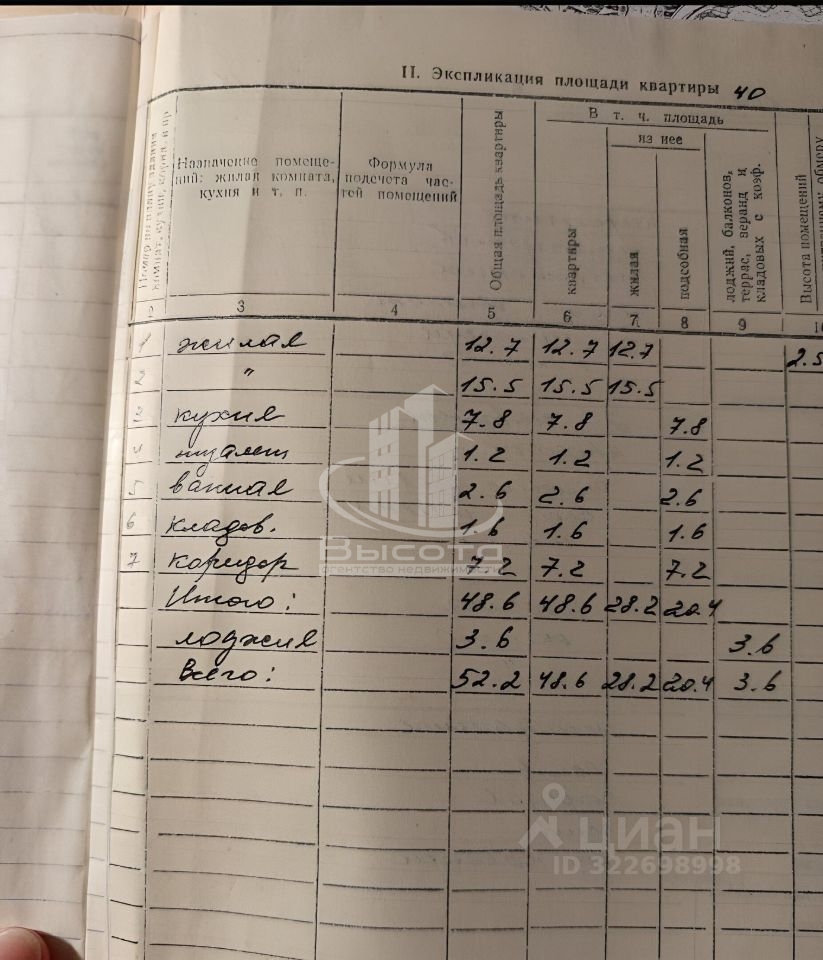 II. Экспликация площади квартиры 40
Назначение помеще-
ний: жилая комната,
кухня и т. п.
Формула
подсчета час-
тей помещений
Общая площадь квартиры
В т. ч. площадь
из нее
квартиры
жилая
подсобная
лоджий, балконов,
террас, веранд и
кладовых с коэф.
Высота помещений
3 4 5 6 7 8 9
1 жилая 12.7 12.7 12.7 2.5
2 " 15.5 15.5 15.5
3 кухня 7.8 7.8 7.8
4 туалет 1.2 1.2 1.2
5 ванная 2.6 2.6 2.6
6 кладов. 1.6 1.6 1.6
7 коридор 7.2 7.2 7.2
Итого: 48.6 48.6 28.2 20.4
лоджия 3.6 3.6
Всего: 52.2 48.6 28.2 20.4 3.6
Высота
агентство недвижимости
циан
ID 322698998